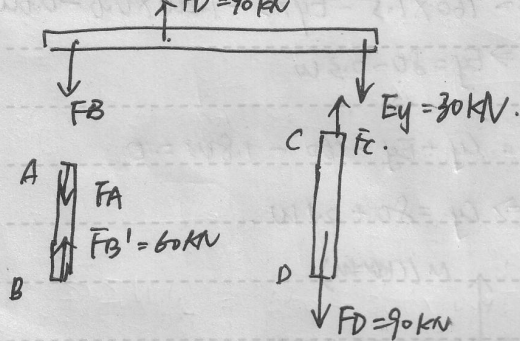 FD = 90KN
FB
Ey = 30KN.
C
FC.
A
FA
FB' = 60KN
B
D
FD = 90KN